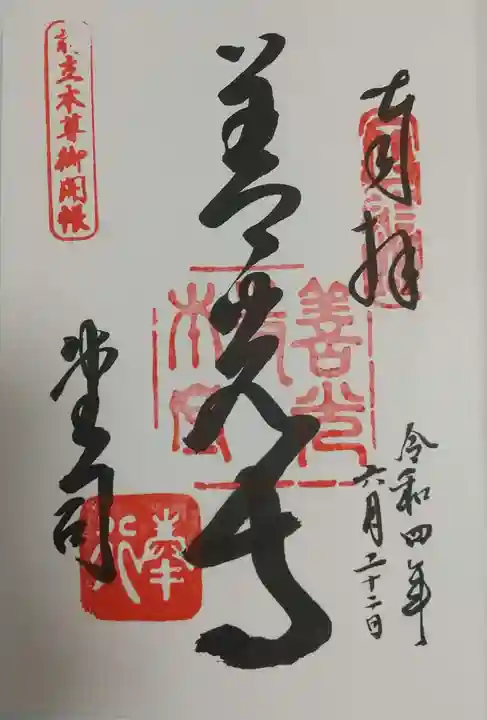 奉拝
令和四年
六月二十二日
善光寺
善光寺本堂
堂司
前立本尊御開帳